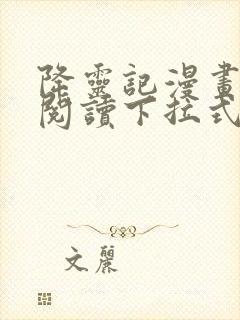 降靈記漫畫
閱讀下拉式
文麗